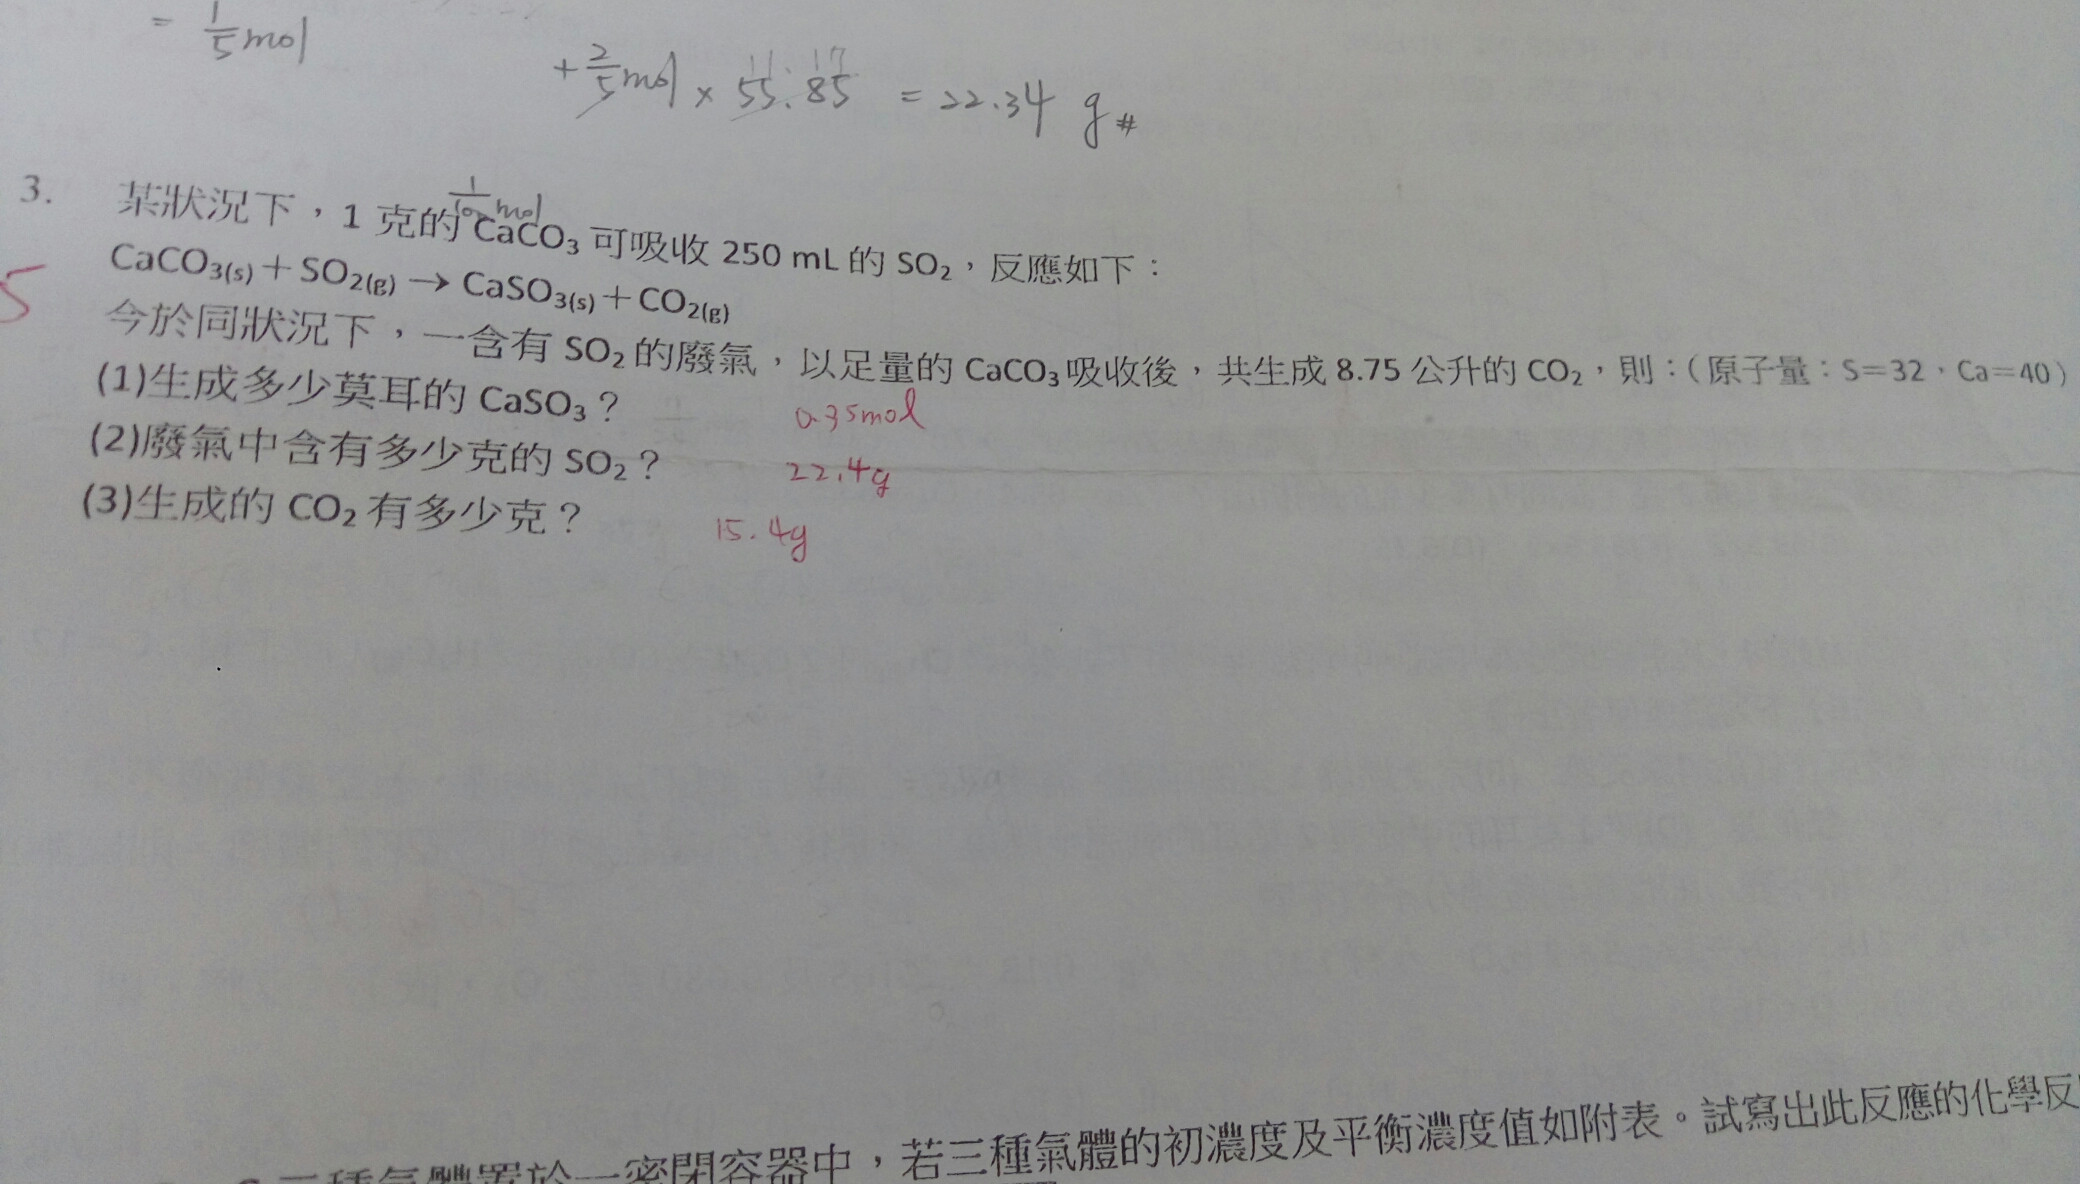 = 1/5 mol
+ 2/5 mol × 55.85 = 22.34 g #
1/100 mol
3. 某狀況下，1 克的 CaCO₃ 可吸收 250 mL 的 SO₂，反應如下：
CaCO₃(s)＋SO₂(g) → CaSO₃(s)＋CO₂(g)
5
今於同狀況下，一含有 SO₂ 的廢氣，以足量的 CaCO₃ 吸收後，共生成 8.75 公升的 CO₂，則：（原子量：S＝32，Ca＝40）
(1)生成多少莫耳的 CaSO₃？ 0.35mol
(2)廢氣中含有多少克的 SO₂？ 22.4g
(3)生成的 CO₂ 有多少克？ 15.4g
三種氣體置於一密閉容器中，若三種氣體的初濃度及平衡濃度值如附表。試寫出此反應的化學反